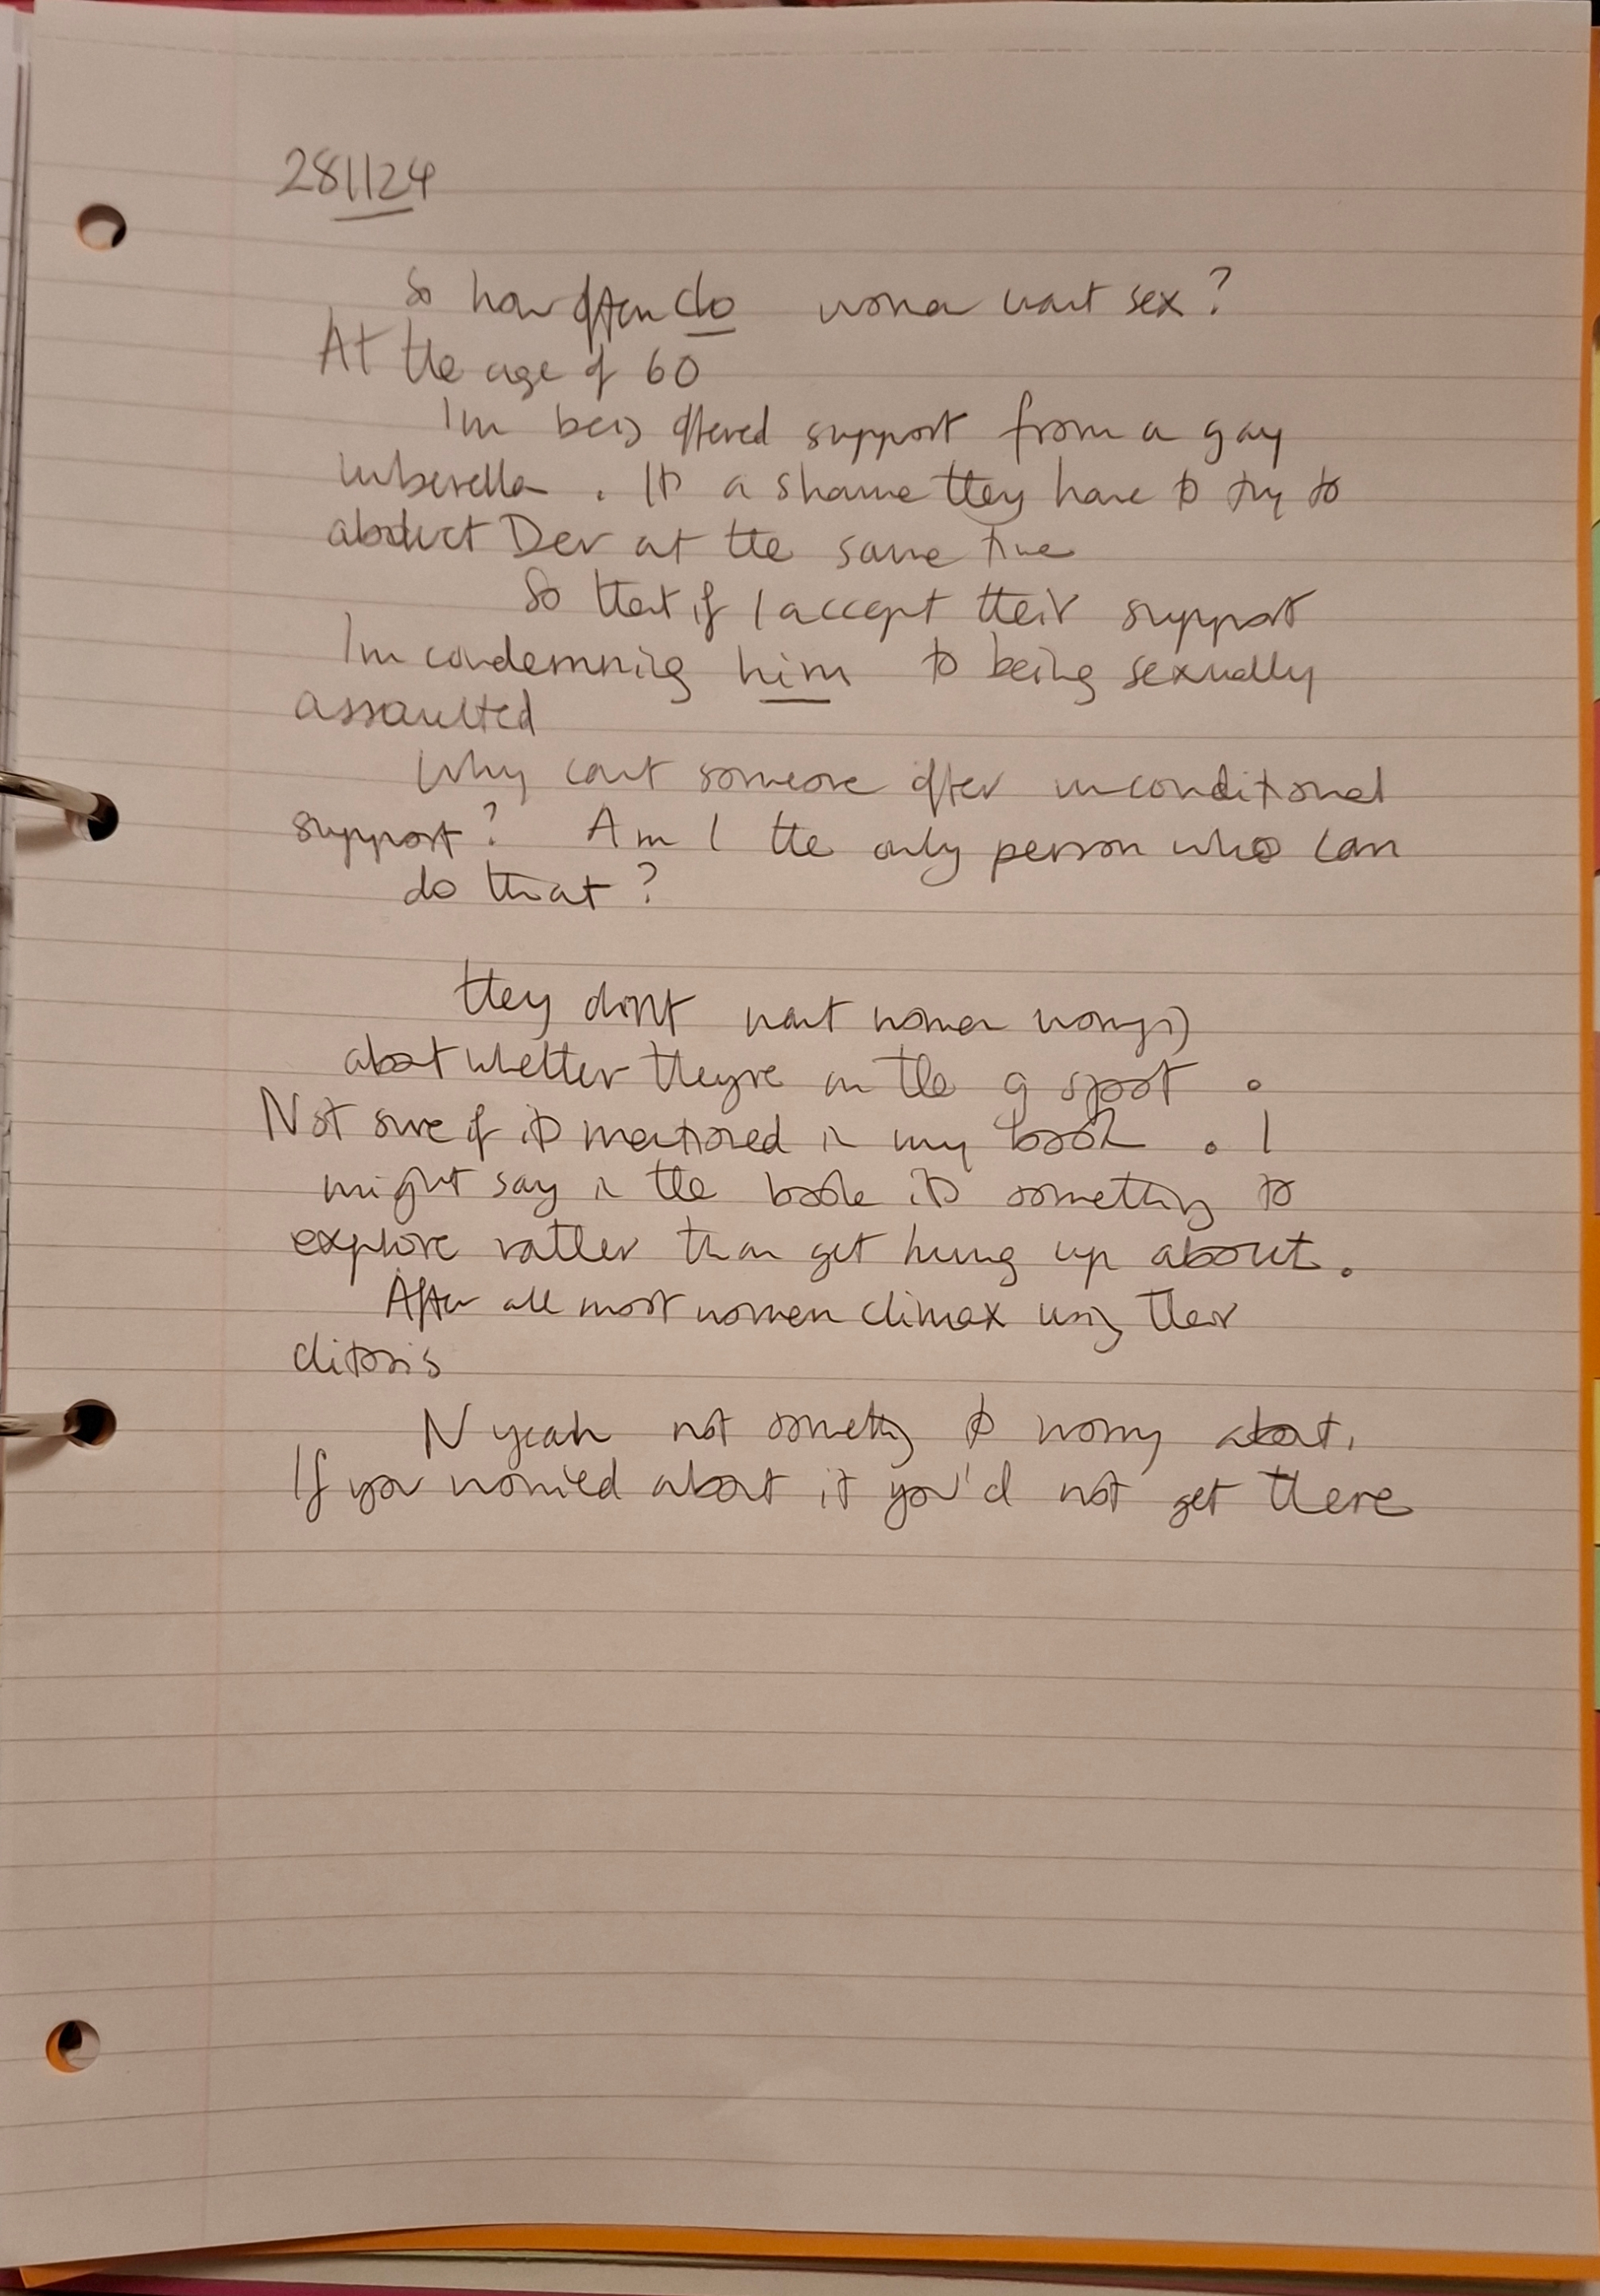 281124
So how often do women want sex?
At the age of 60
Im being offered support from a gay
umberella. Its a shame they have to try to
abduct Dev at the same time
So that if I accept their support
Im condemning him to being sexually
assaulted
Why cant someone offer unconditional
support? Am I the only person who can
do that?
they dont want women worrying
about whether theyre on the g spot.
Not sure if its mentioned in my book. I
might say in the book its something to
explore rather than get hung up about.
After all most women climax using their
clitoris
N yeah not something to worry about.
If you worried about it you'd not get there